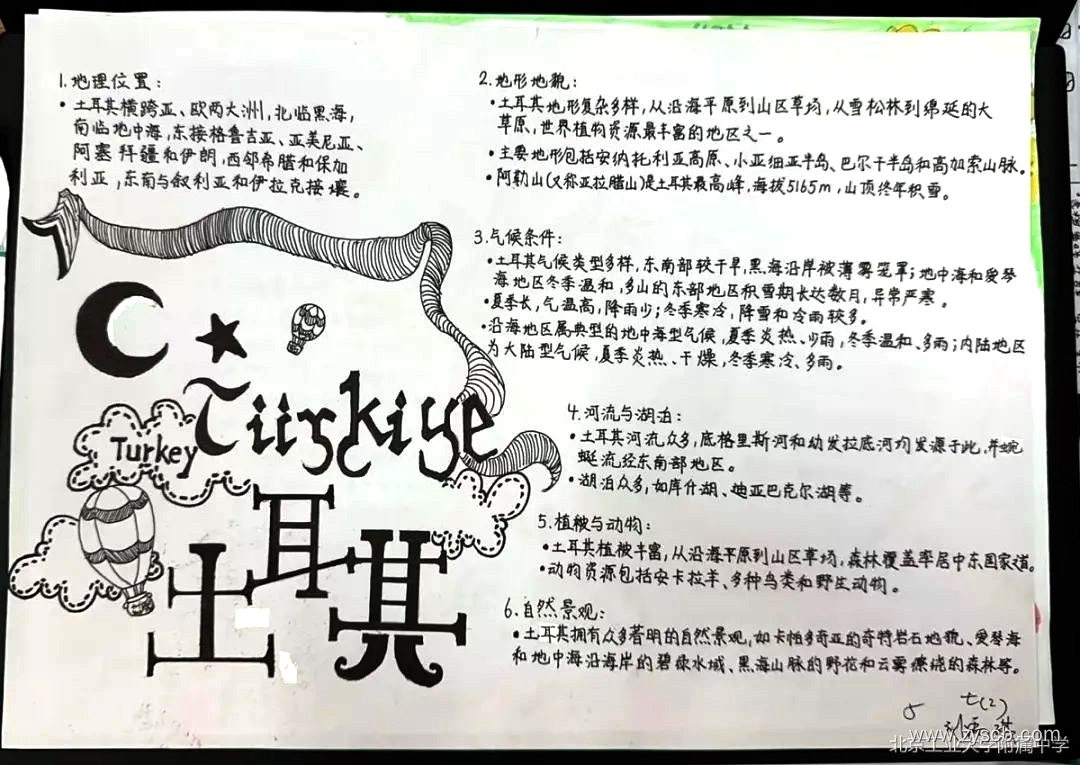 1.地理位置:
•土耳其横跨亚、欧两大洲,北临黑海,
南临地中海,东接格鲁吉亚、亚美尼亚、
阿塞拜疆和伊朗,西邻希腊和保加
利亚,东南与叙利亚和伊拉克接壤。
2.地形地貌:
•土耳其地形复杂多样,从沿海平原到山区草场,从雪松林到绵延的大
草原,世界植物资源最丰富的地区之一。
•主要地形包括安纳托利亚高原、小亚细亚半岛、巴尔干半岛和高加索山脉。
•阿勒山(又称亚拉腊山)是土耳其最高峰,海拔5165m,山顶终年积雪。
3.气候条件:
•土耳其气候类型多样,东南部较干旱,黑海沿岸被薄雾笼罩;地中海和爱琴
海地区冬季温和,多山的东部地区积雪期长达数月,异常严寒。
•夏季长,气温高,降雨少;冬季寒冷,降雪和冷雨较多。
•沿海地区属典型的地中海型气候,夏季炎热、少雨,冬季温和、多雨;内陆地区
为大陆型气候,夏季炎热、干燥,冬季寒冷、多雨。
Türkiye
Turkey
土耳其
4.河流与湖泊:
•土耳其河流众多,底格里斯河和幼发拉底河均发源于此,并蜿
蜒流经东南部地区。
•湖泊众多,如库什湖、迪亚巴克尔湖等。
5.植被与动物:
•土耳其植被丰富,从沿海平原到山区草场,森林覆盖率居中东国家首。
•动物资源包括安卡拉羊、多种鸟类和野生动物。
6.自然景观:
•土耳其拥有众多著明的自然景观,如卡帕多奇亚的奇特岩石地貌、爱琴海
和地中海沿海岸的碧绿水域、黑海山脉的野花和云雾缭绕的森林等。
七(2)
www.zysch.com
北京工业大学附属中学